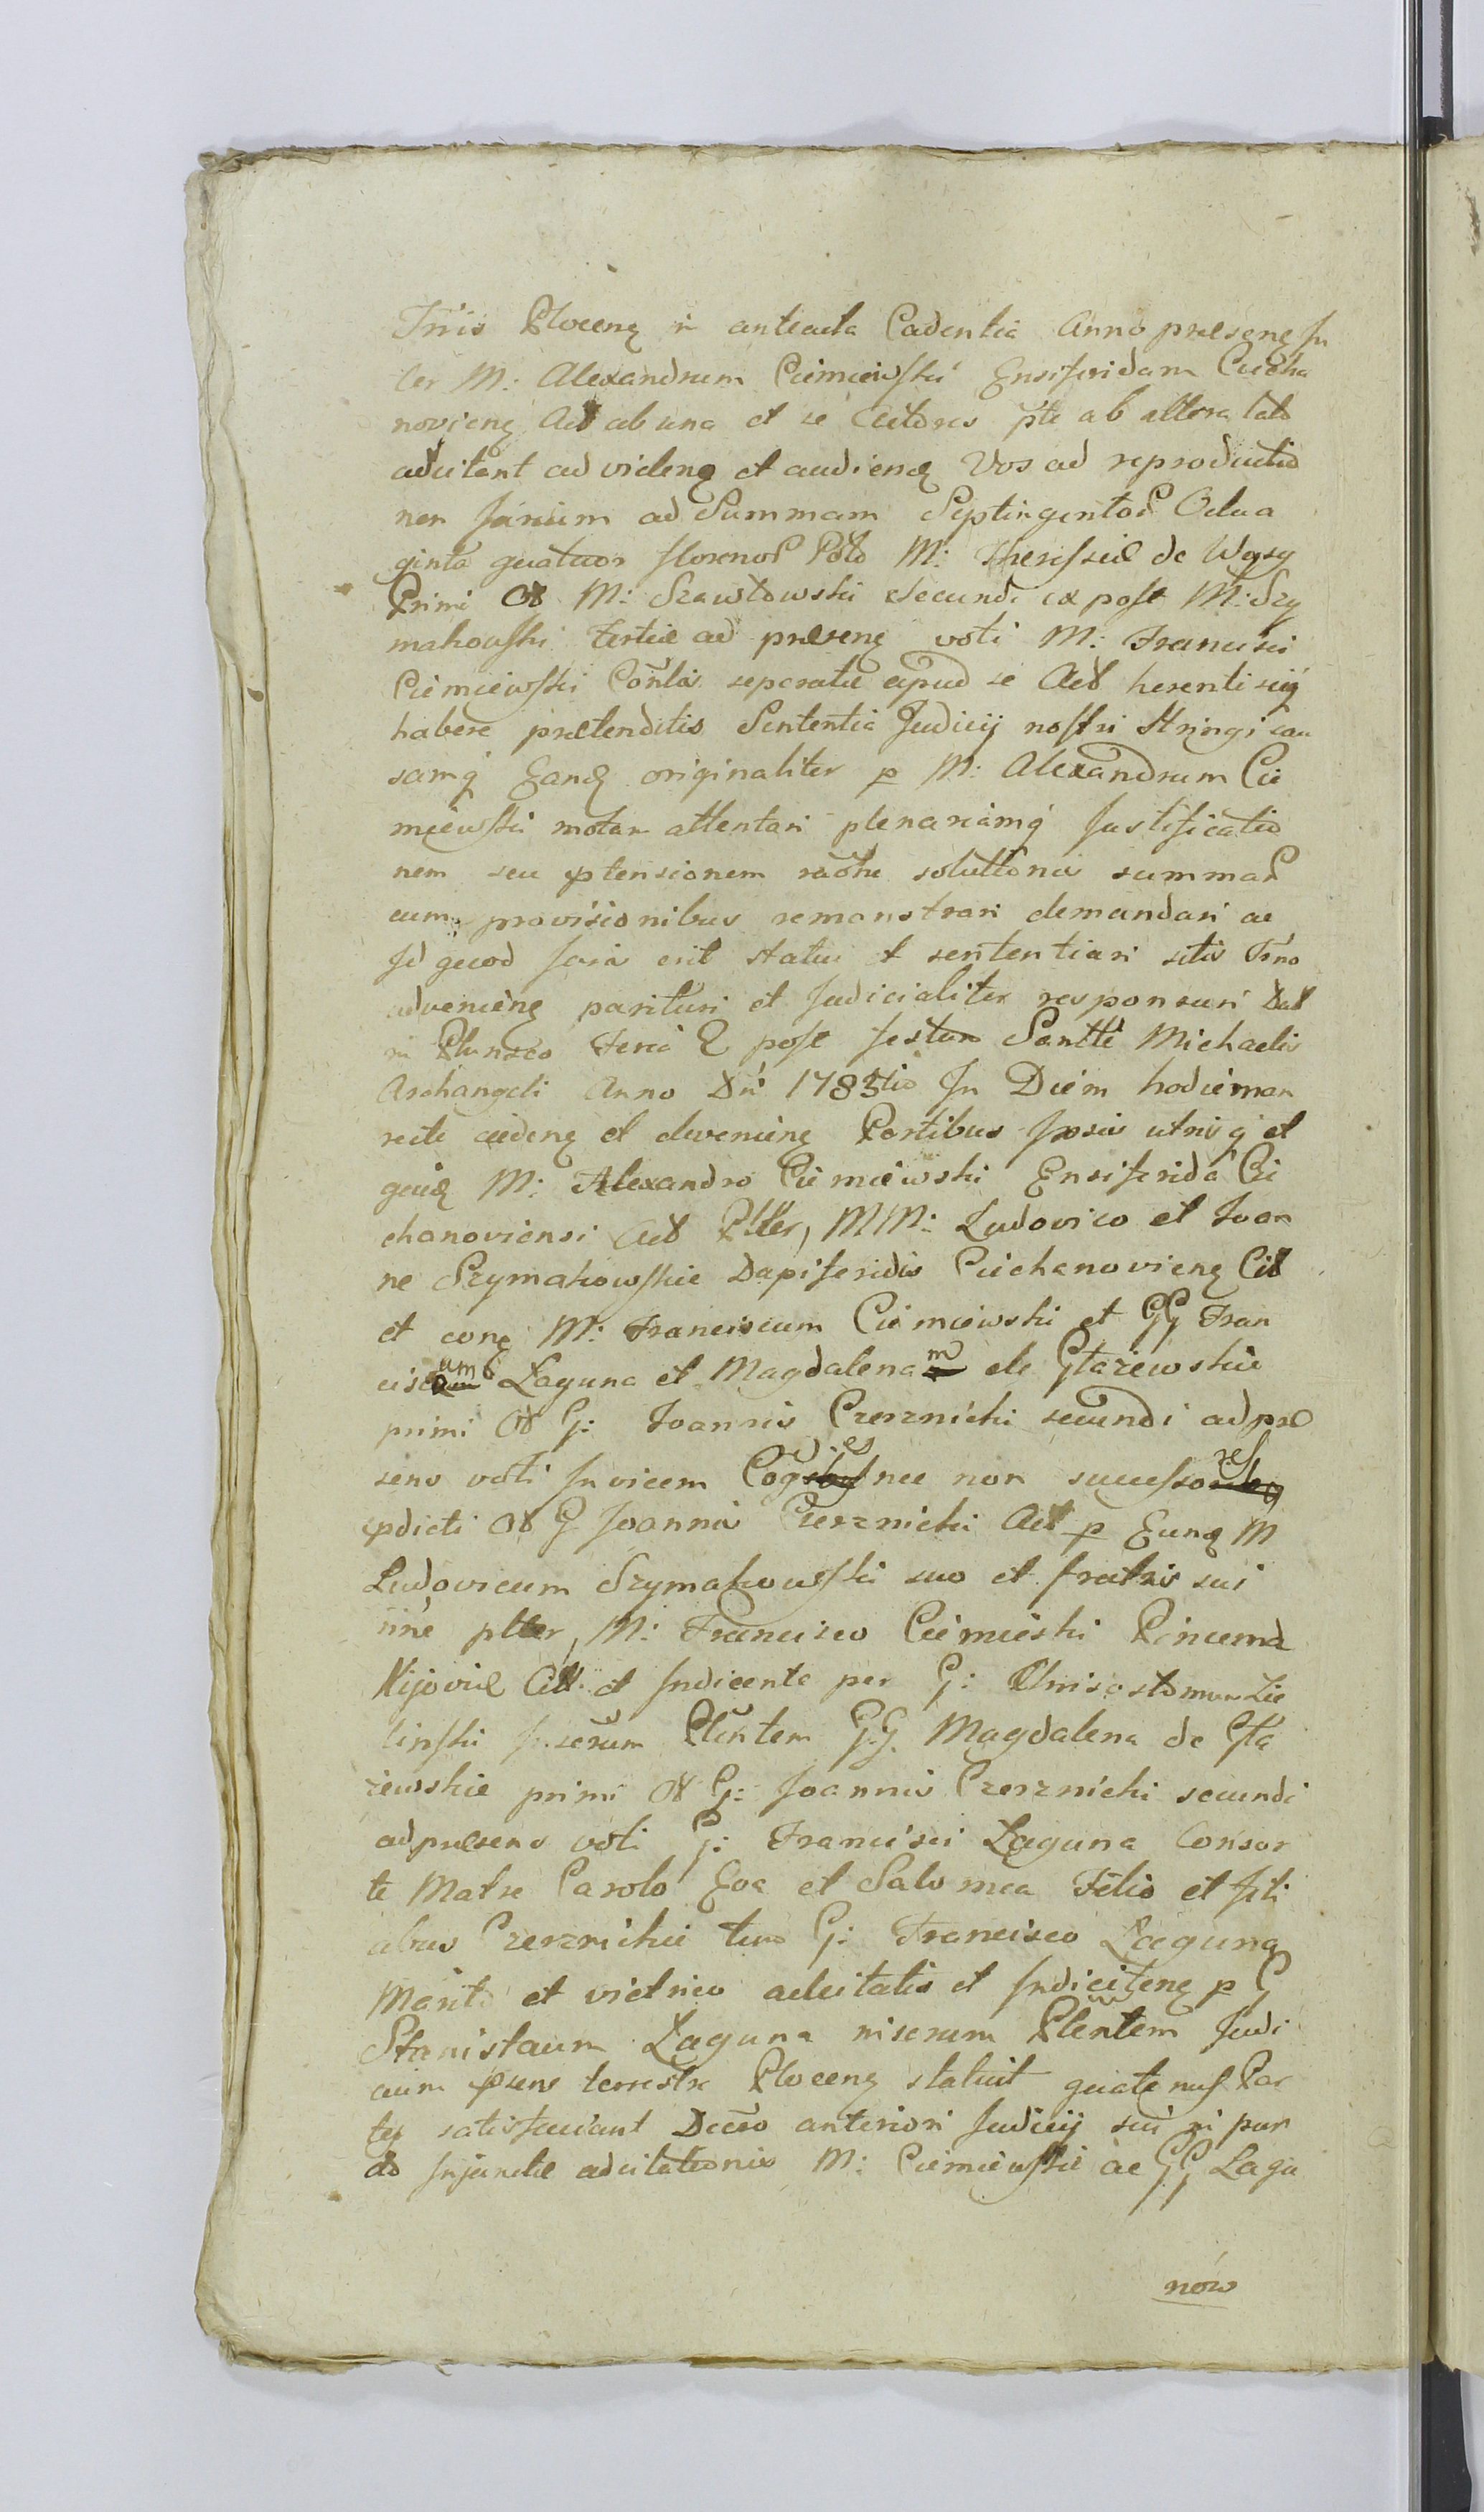 Tris Plocen in anteacta Cadentia Anno præsen In
ter M: Alexandrum Ciemiewski Ensiferidam Ciecha
novien Act ab una et se Citdres pte ab altera lato
adcitant ad viden et audien Vos ad reproductio
nen Jurium ad Summam Septingentos Octua
ginta quatuor florenos Polo M: Theressiæ de Węsy
Primi Ol M: Szawłowski secundi ex post M: Szy
makowski tertiæ ad præsen voti M: Francisci
Ciemiewski Contlis separatæ apud se Act herenti seq
habere prætenditis Sententia Judicij nostri Stringi cau
samq Eand originaliter p M: Alexandrum Cie
miewski motam attentari plenariamq Justificatio
nem seu ptensionem raone soluttonis summar
cum provisionibus remonstrari demandari ac
Id quod Juris erit statui et sententiari sitis Trno
advenien parituri et Judicialiter responsuri Dat
in Plunsco Feria 2 post festum Santti Michaelis
Archangeli Anno Dni 1785tio In Diem hodiernan
recte ceden et devenien Partibus Ipsis utrisq et
quid M: Alexandro Ciemiewski Ensiferida Cie
chanoviensi Act Pller, MM: Ludovico et Joan
ne Szymakowskie Dapiferidis Ciechanovien Cit
et con M: Franciscum Ciemiewski et GG Fran
ciscum Łaguna et Magdalenam de Głażewskie
primi Ol G: Joannis Czerznicki secundi ad præ
sens voti Invicem Cogdes nec non successores
pdicti Ol G Joannis Czerznicki Act p Eund M
Ludovicum Szymakowski suo et fratris sui
nne pller, M: Francisco Ciemieski Pincerna
Kijoviæ Citt. et Indicente per G: Chrisostomum Zie
linski Juserum Plentem GG. Magdalena de Gła
żewskie primi Ol G: Joannis Czerznicki secundi
ad præsens voti G: Francisci Łaguna Consor
te Matre Carolo Eva et Salomea Filio et fili
abus Czerznickie tum G: Francisco Łaguna
Marito et victrico adcitatis et Indiciten p G
Stanisłaum Łaguna niserum Plentem Judi
cium psens terrestre Plocen statuit quatenus Par
tes satisfaciant Decro anteriori Judicij sui in pun
cto Injunctæ adcitationis M: Ciemiewski ac GG Łagu
now